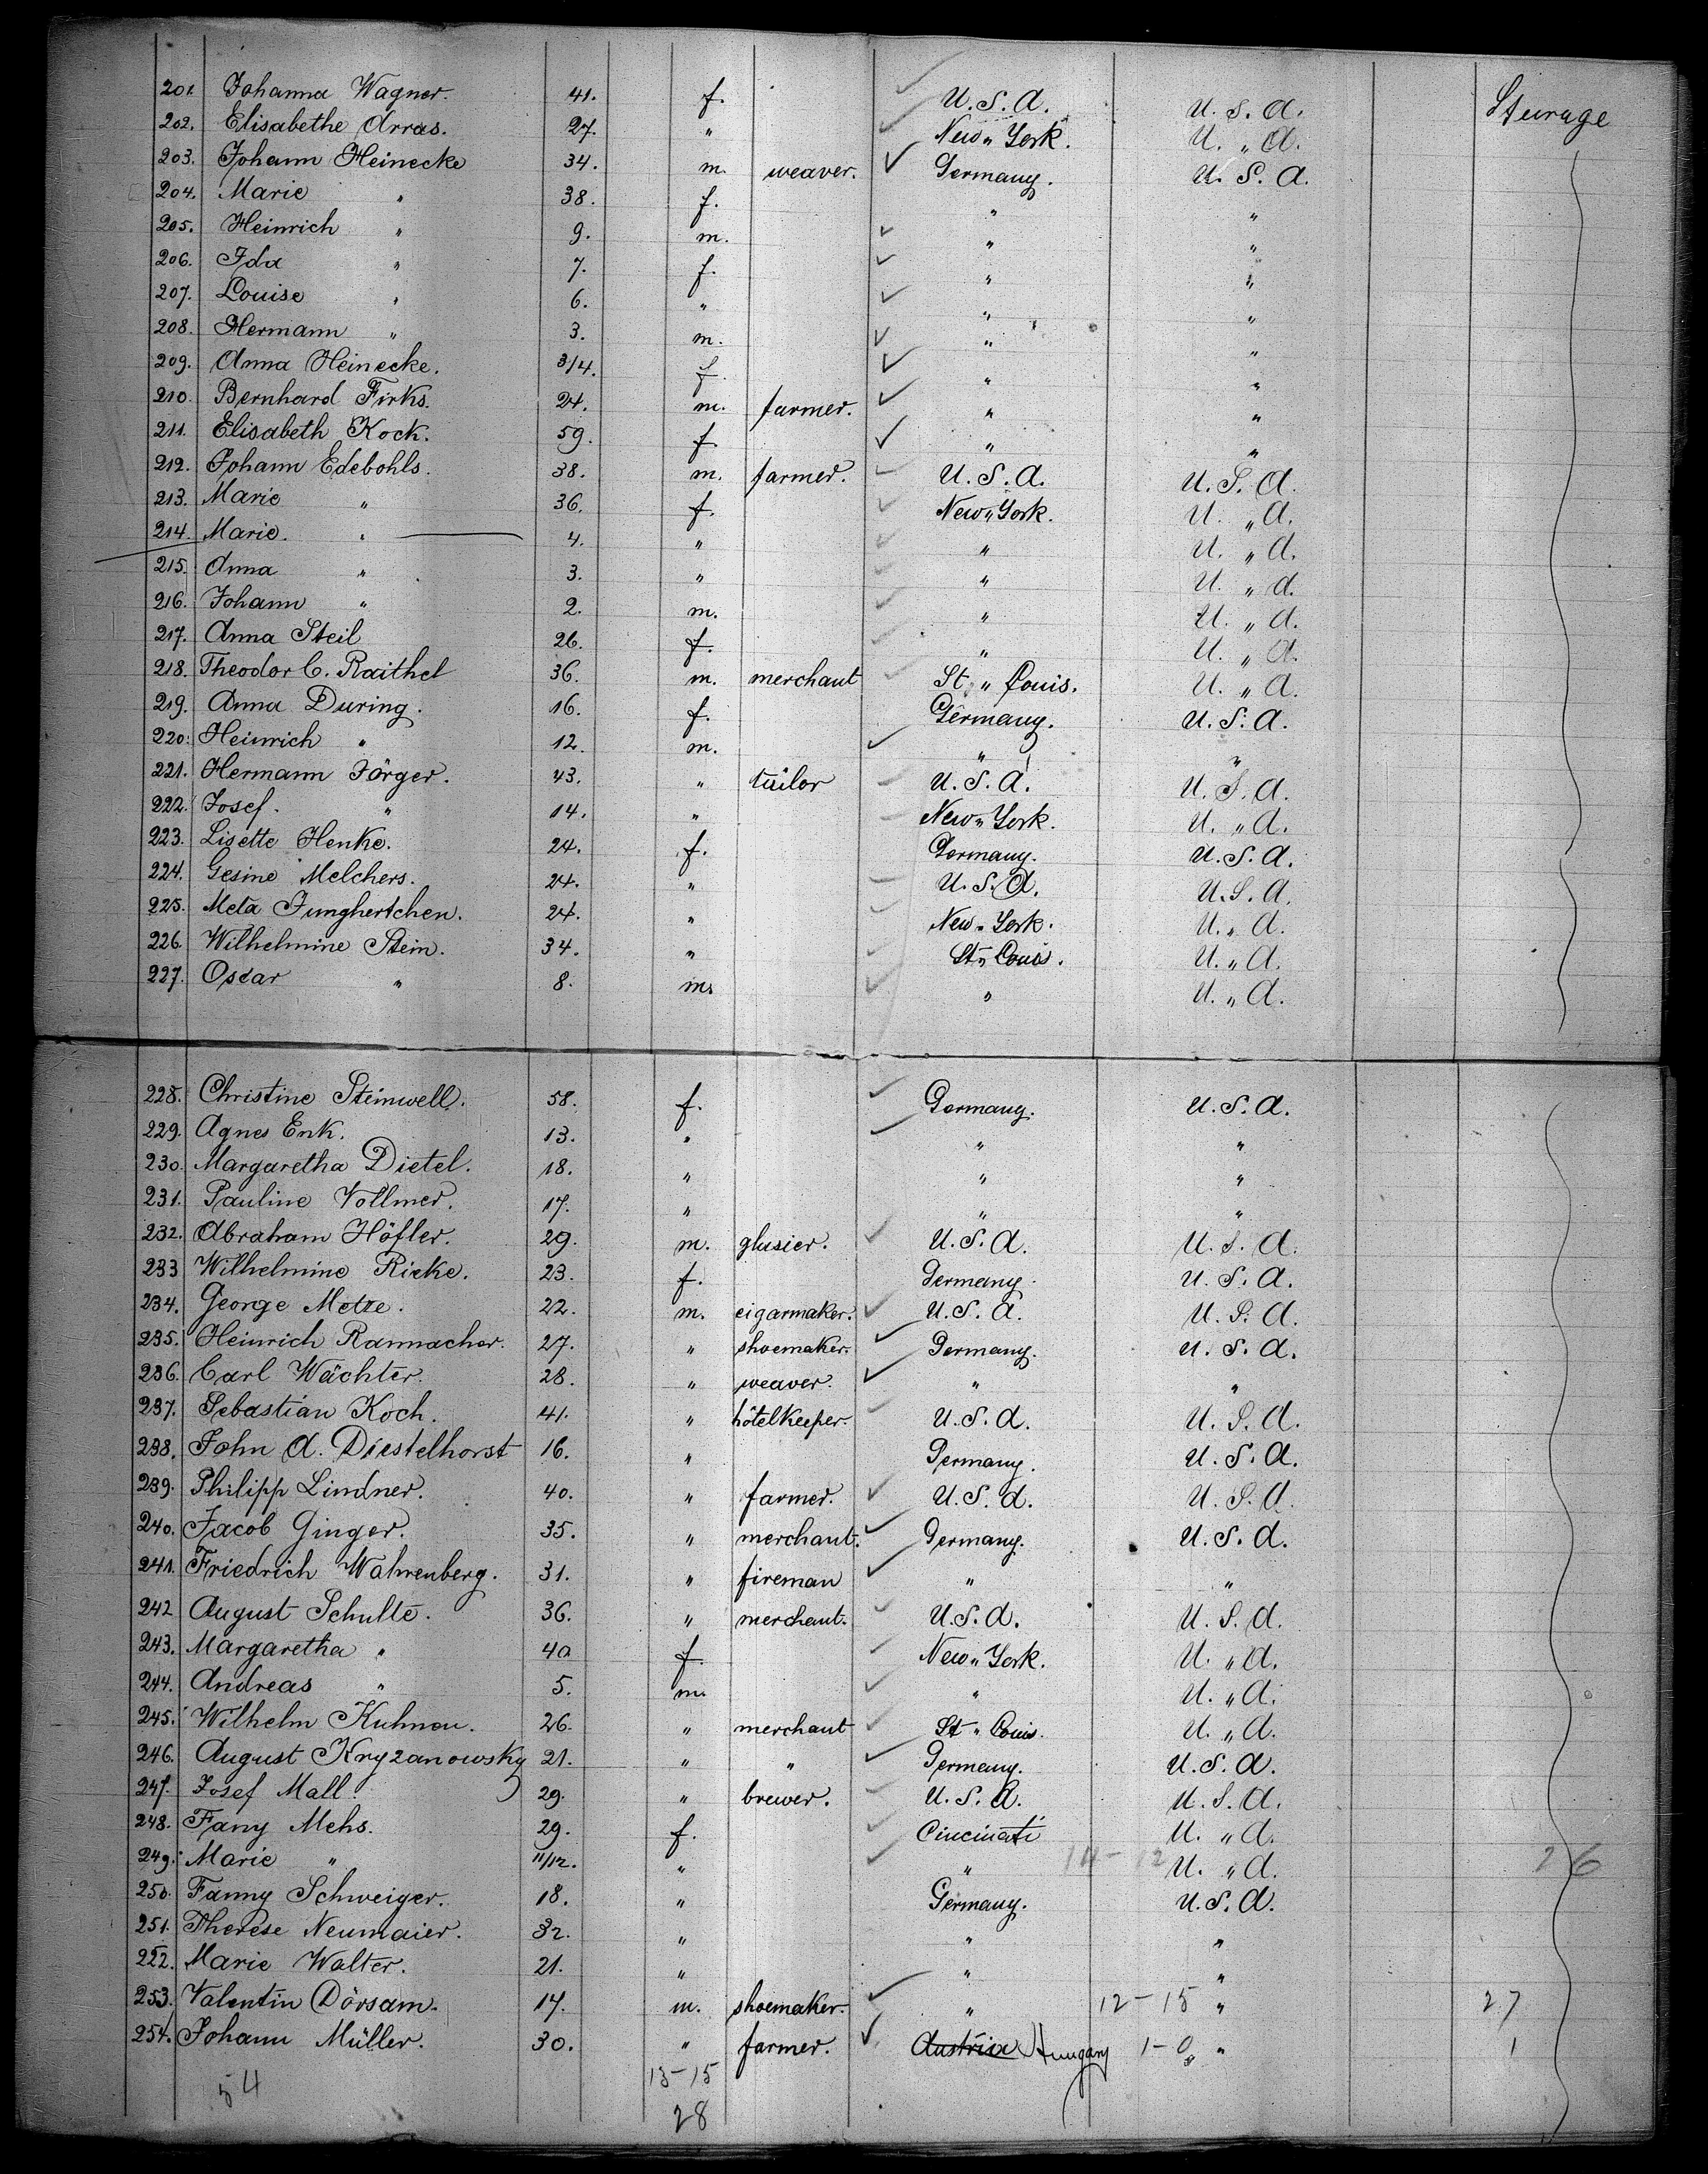 201. Johanna Wagner. 41. f. U.S.A. U.S.A. Steurage
202. Elisabethe Arras. 27. " New "York. U. " A.
203. Johann Heinecke 34. m. weaver. Germany. U.S.A.
204. Marie " 38. f. " "
205. Heinrich " 9. m. " "
206. Ida " 7. f. " "
207. Louise " 6. " " "
208. Hermann " 3. m. " "
209. Anna Heinecke. 3/4. f. " "
210. Bernhard Firks. 24. m. farmer. " "
211. Elisabeth Kock. 59. f. " "
212. Johann Edebohls. 38. m. farmer. U.S.A. U.S.A.
213. Marie " 36. f. New "York. U. " A.
214. Marie. " 4. " " U. " A.
215. Anna " 3. " " U. " A.
216. Johann " 2. m. " U. " A.
217. Anna Steil 26. f. " U. " A.
218. Theodor C. Raithel 36. m. merchant St " Louis. U. " A.
219. Anna During. 16. f. Germany. U.S.A.
220. Heinrich " 12. m. " "
221. Hermann Jörger. 43. " tailor U.S.A. U.S.A.
222. Josef. " 14. " New "York. U. " A.
223. Lisette Henke. 24. f. Germany. U.S.A.
224. Gesine Melchers. 24. " U.S.A. U.S.A.
225. Meta Junghertchen. 24. " New "York. U. " A.
226. Wilhelmine Stein. 34. " St " Louis. U. " A.
227. Oscar " 8. m. " U. " A.
228. Christine Steinwell. 58. f. Germany. U.S.A.
229. Agnes Enk. 13. " " "
230. Margaretha Dietel. 18. " " "
231. Pauline Vollmer. 17. " " "
232. Abraham Höfler. 29. m. glasier. U.S.A. U.S.A.
233 Wilhelmine Ricke. 23. f. Germany. U.S.A.
234. George Metze. 22. m. cigarmaker. U.S.A. U.S.A.
235. Heinrich Rannacher. 27. " shoemaker. Germany. U.S.A.
236. Carl Wächter. 28. " weaver. " "
237. Sebastian Koch. 41. " hôtelkeeper. U.S.A. U.S.A.
238. John A. Diestelhorst 16. " Germany. U.S.A.
239. Philipp Lindner. 40. " farmer. U.S.A. U.S.A.
240. Jacob Ginger. 35. " merchant. Germany. U.S.A.
241. Friedrich Wahrenberg. 31. " fireman " "
242 August Schulte. 36. " merchant. U.S.A. U.S.A.
243. Margaretha " 40 f. New "York. U. " A.
244. Andreas " 5. m. " U. " A.
245. Wilhelm Kuhnau. 26. " merchant St " Louis. U. " A.
246. August Kryzanowsky 21. " " Germany. U.S.A.
247. Josef Mall. 29. " brewer. U.S.A. U.S.A.
248. Fany Mehs. 29. f. Cincinati U. " A.
249. Marie " 11/12. " " 14-12 U. " A. 26
250. Fanny Schweiger. 18. " Germany. U.S.A.
251. Therese Neumaier. 32. " " "
222. Marie Walter. 21. " " "
253. Valentin Dörsam. 17. m. shoemaker. " 12-15 " 27
254. Johann Müller. 30. " farmer. Austria Hungary 1-0 " 1
54 13-15
28